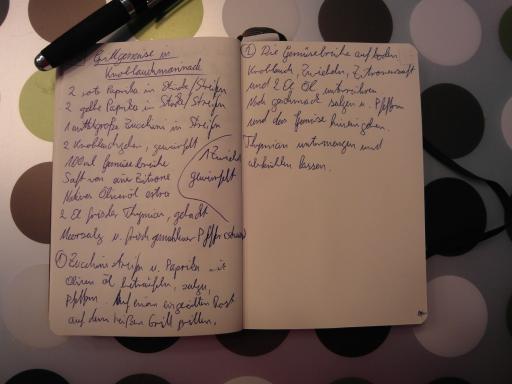 Grillgemüse in
Knoblauchmarinade
2 rote Paprika in Stücke/Streifen
2 gelbe Paprika in Stücke/Streifen
1 mittelgroße Zucchini in Streifen
2 Knoblauchzehen, gewürfelt
1 Zwiebel
gewürfelt
100ml Gemüsebrühe
Saft von einer Zitrone
Natives Olivenöl extra
2 El frischer Thymian, gehackt
Meersalz u. frisch gemahlener Pfeffer (schwarz)
① Zucchini Streifen u. Paprika mit
Oliven öl beträufeln, salzen,
Pfeffern. Auf einem eingeölten Rost
auf dem heißen Grill grillen.
② Die Gemüsebrühe aufkochen.
Knoblauch, Zwiebeln, Zitronensaft
und 2 El Öl unterrühren
Nach geschmack salzen u. Pfeffern
und das Gemüse hineingeben.
Thymian untermengen und
abkühlen lassen.